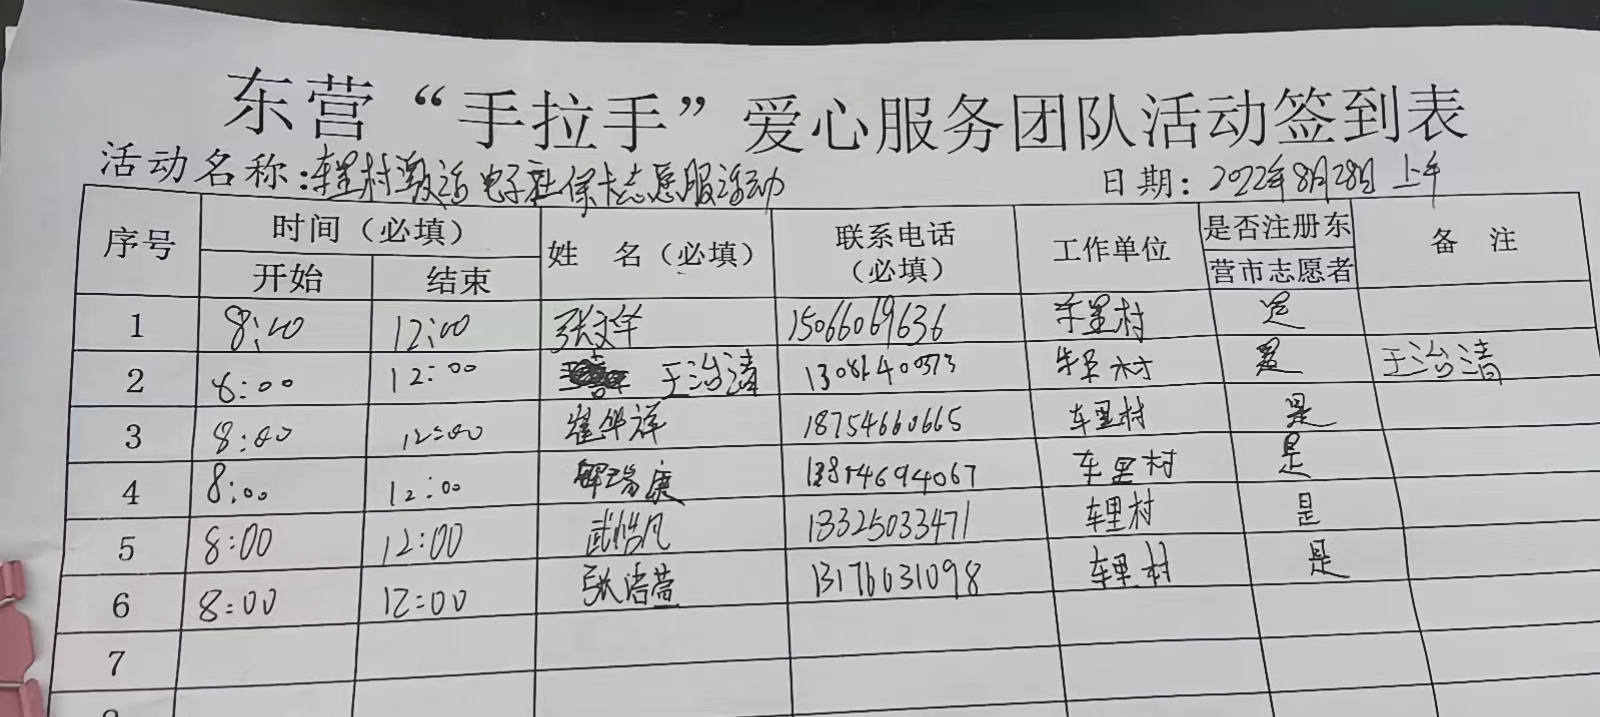 东营“手拉手”爱心服务团队活动签到表
活动名称：车里村激活电子社保卡志愿服活动 日期：2022年8月28日上午
序号 时间（必填） 姓 名（必填） 联系电话（必填） 工作单位 是否注册东营市志愿者 备 注
开始 结束
1 8:00 12:00 张文华 15066069636 车里村 是
2 8:00 12:00 王治清 车里村 是 王治清
3 8:00 12:00 崔华祥 18754660665 车里村 是
4 8:00 12:00 解瑞康 车里村 是
5 8:00 12:00 武皓凡 13325033471 车里村 是
6 8:00 12:00 张浩萱 13176031098 车里村 是
7